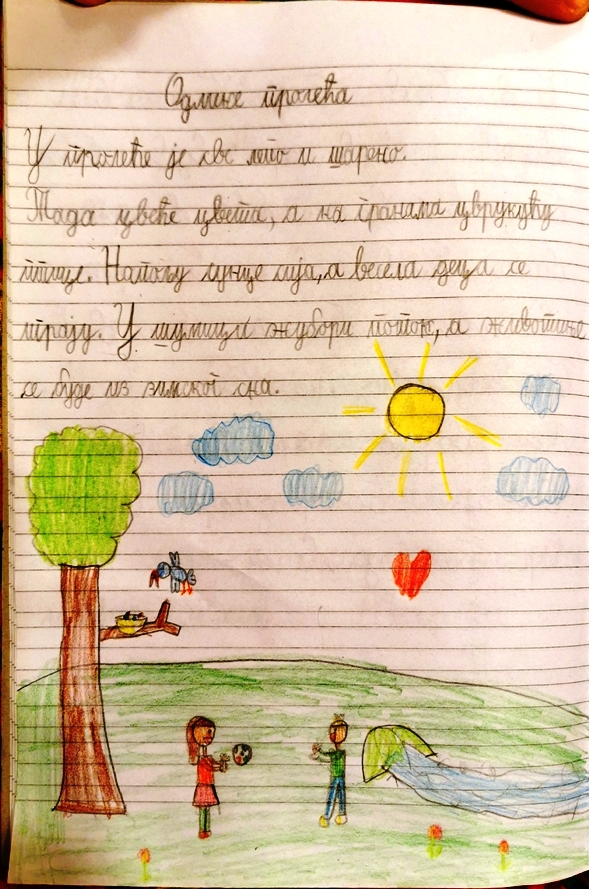 Одлике пролећа
У пролеће је све лепо и шарено.
Тада цвеће цвета, а на гранама цвркућу
птице. Напољу сунце сија, а весела деца се
играју. У шумици жубори поток, а животиње
се буде из зимског сна.